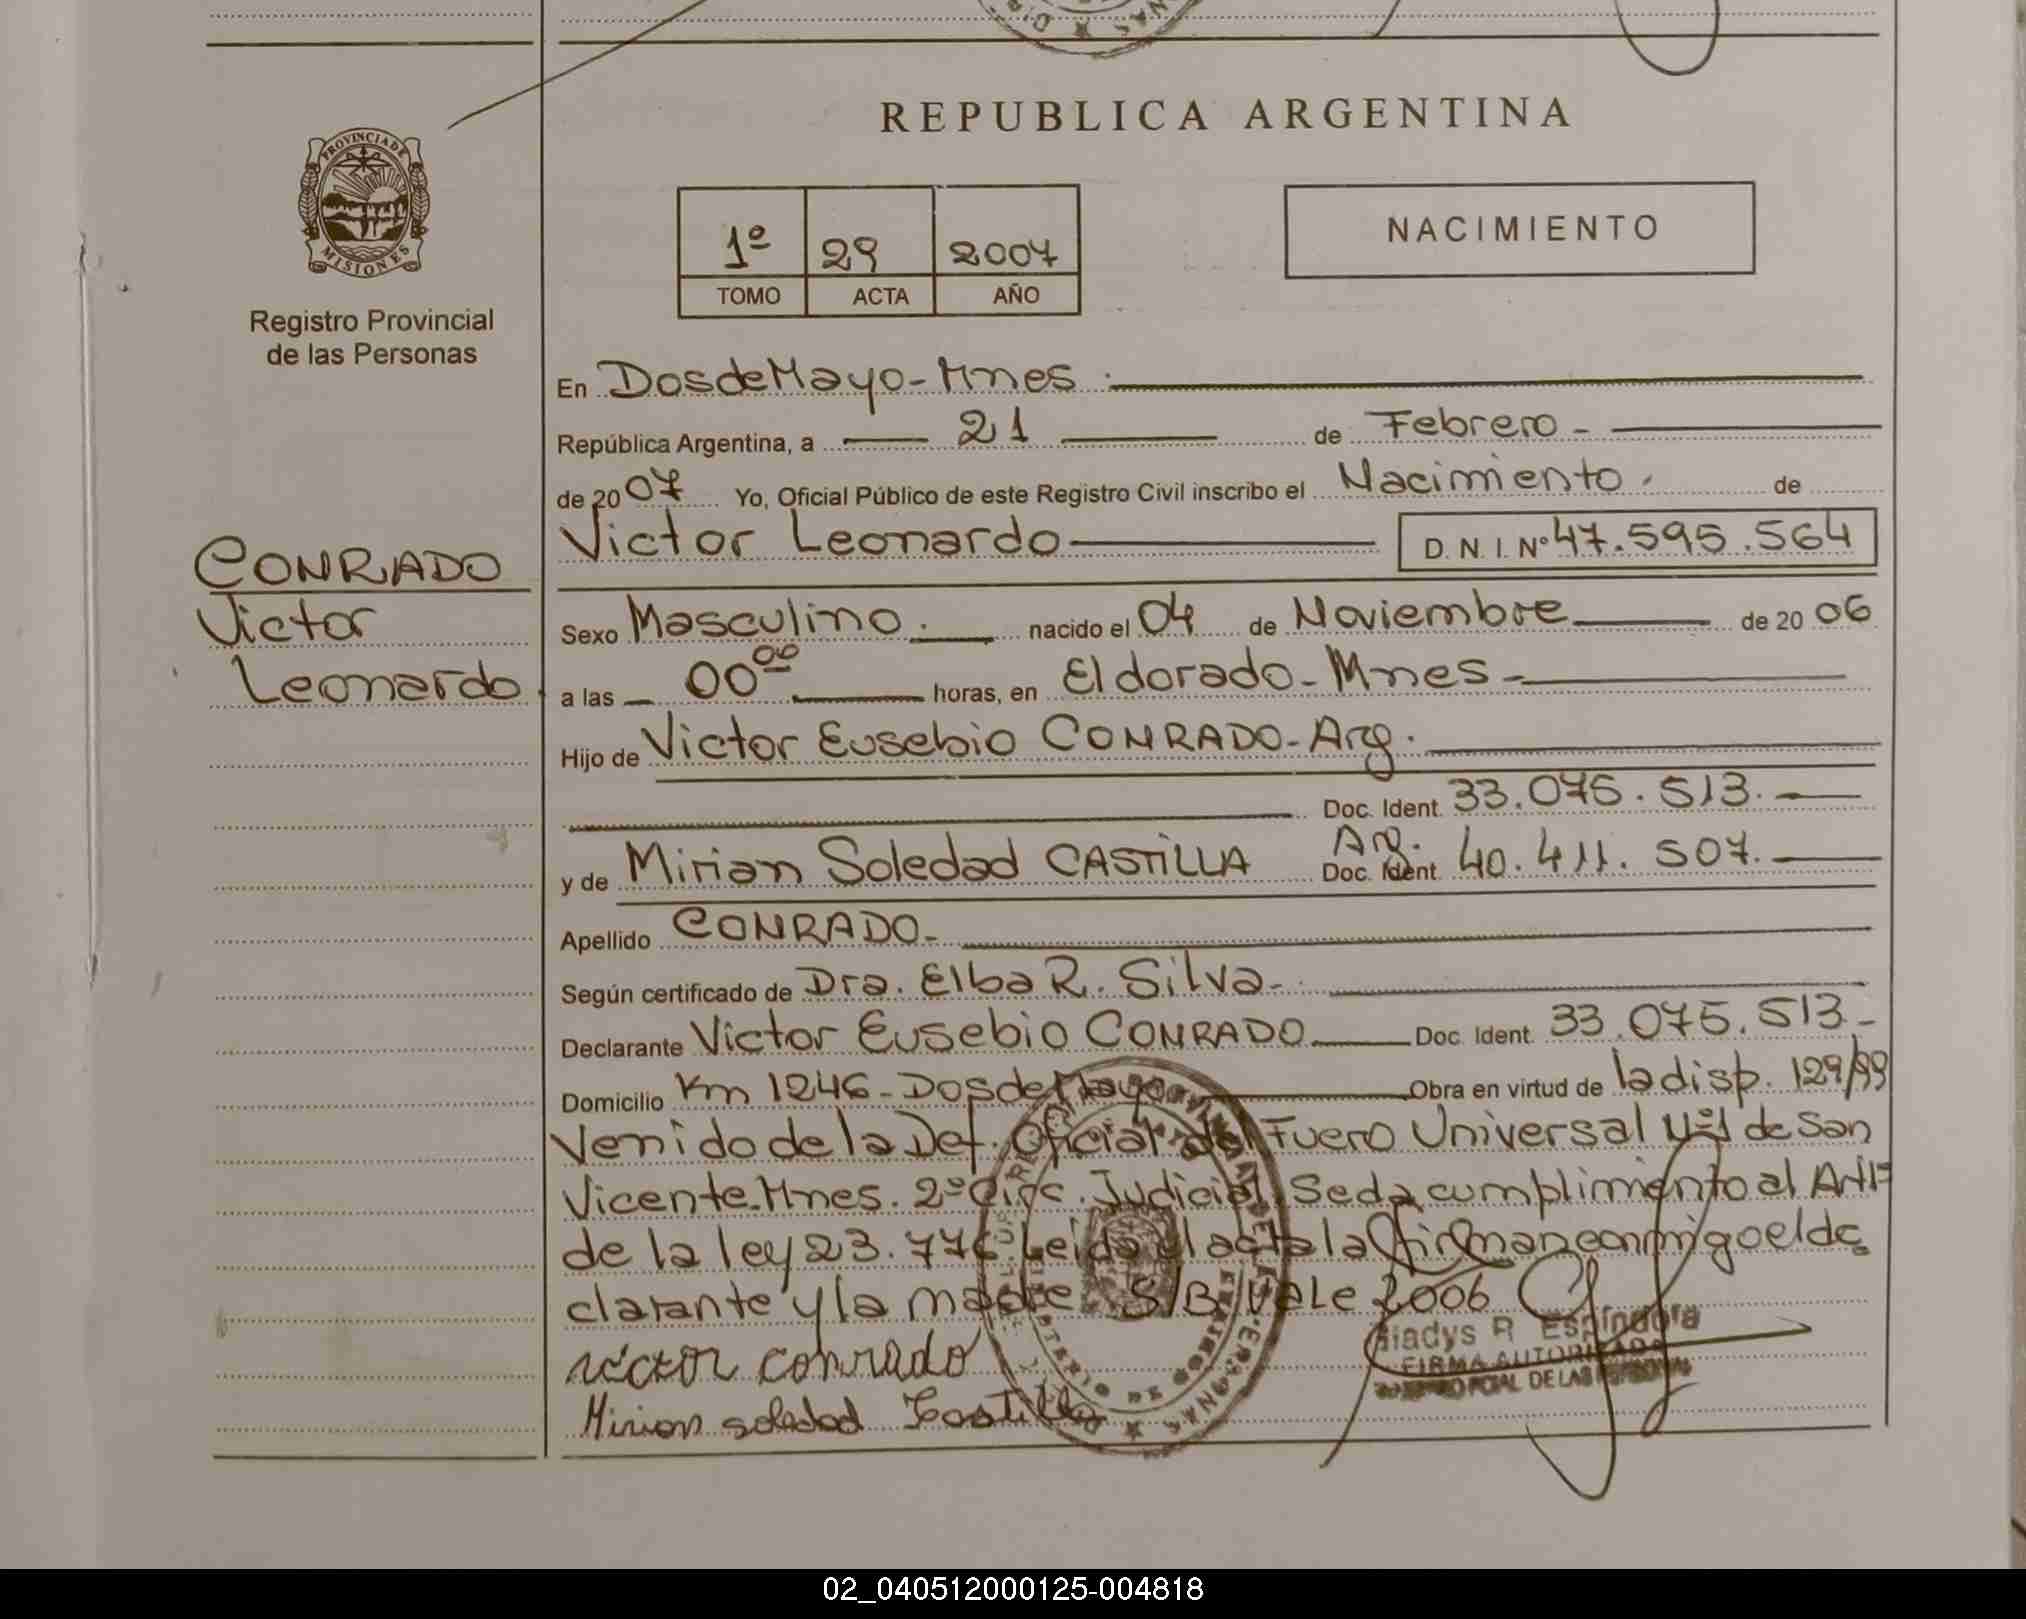 REPUBLICA ARGENTINA
PROVINCIA DE
MISIONES
Registro Provincial
de las Personas
1º 29 2007
TOMO ACTA AÑO
NACIMIENTO
En Dos de Mayo - Mnes.
República Argentina, a 21 de Febrero -
de 20 07 Yo, Oficial Público de este Registro Civil inscribo el Nacimiento. de
Victor Leonardo D. N. I. Nº 47.595.564
CONRADO
Victor
Leonardo
Sexo Masculino. nacido el 04 de Noviembre de 20 06
a las 00 00 horas, en Eldorado - Mnes -
Hijo de Victor Eusebio CONRADO - Arg.
Doc. Ident. 33.075.513.
y de Mirian Soledad CASTILLA Arg. Doc. Ident. 40.411.507.
Apellido CONRADO -
Según certificado de Dra. Elba R. Silva -
Declarante Victor Eusebio CONRADO Doc. Ident. 33.075.513 -
Domicilio Km 1246 - Dos de Mayo Obra en virtud de la disp. 129/99
Venido de la Def. Oficial del Fuero Universal Nº1 de San
Vicente. Mnes. 2º Circ. Judicial. Se da cumplimiento al Art 1º
de la ley 23.776. Leida el acta la firman conmigo el de
clarante y la madre S/B Vale 2006
victor conrado
Mirian soledad Castilla
Gladys R. Espíndola
FIRMA AUTORIZADA
DE LAS PERSONAS
02_040512000125-004818